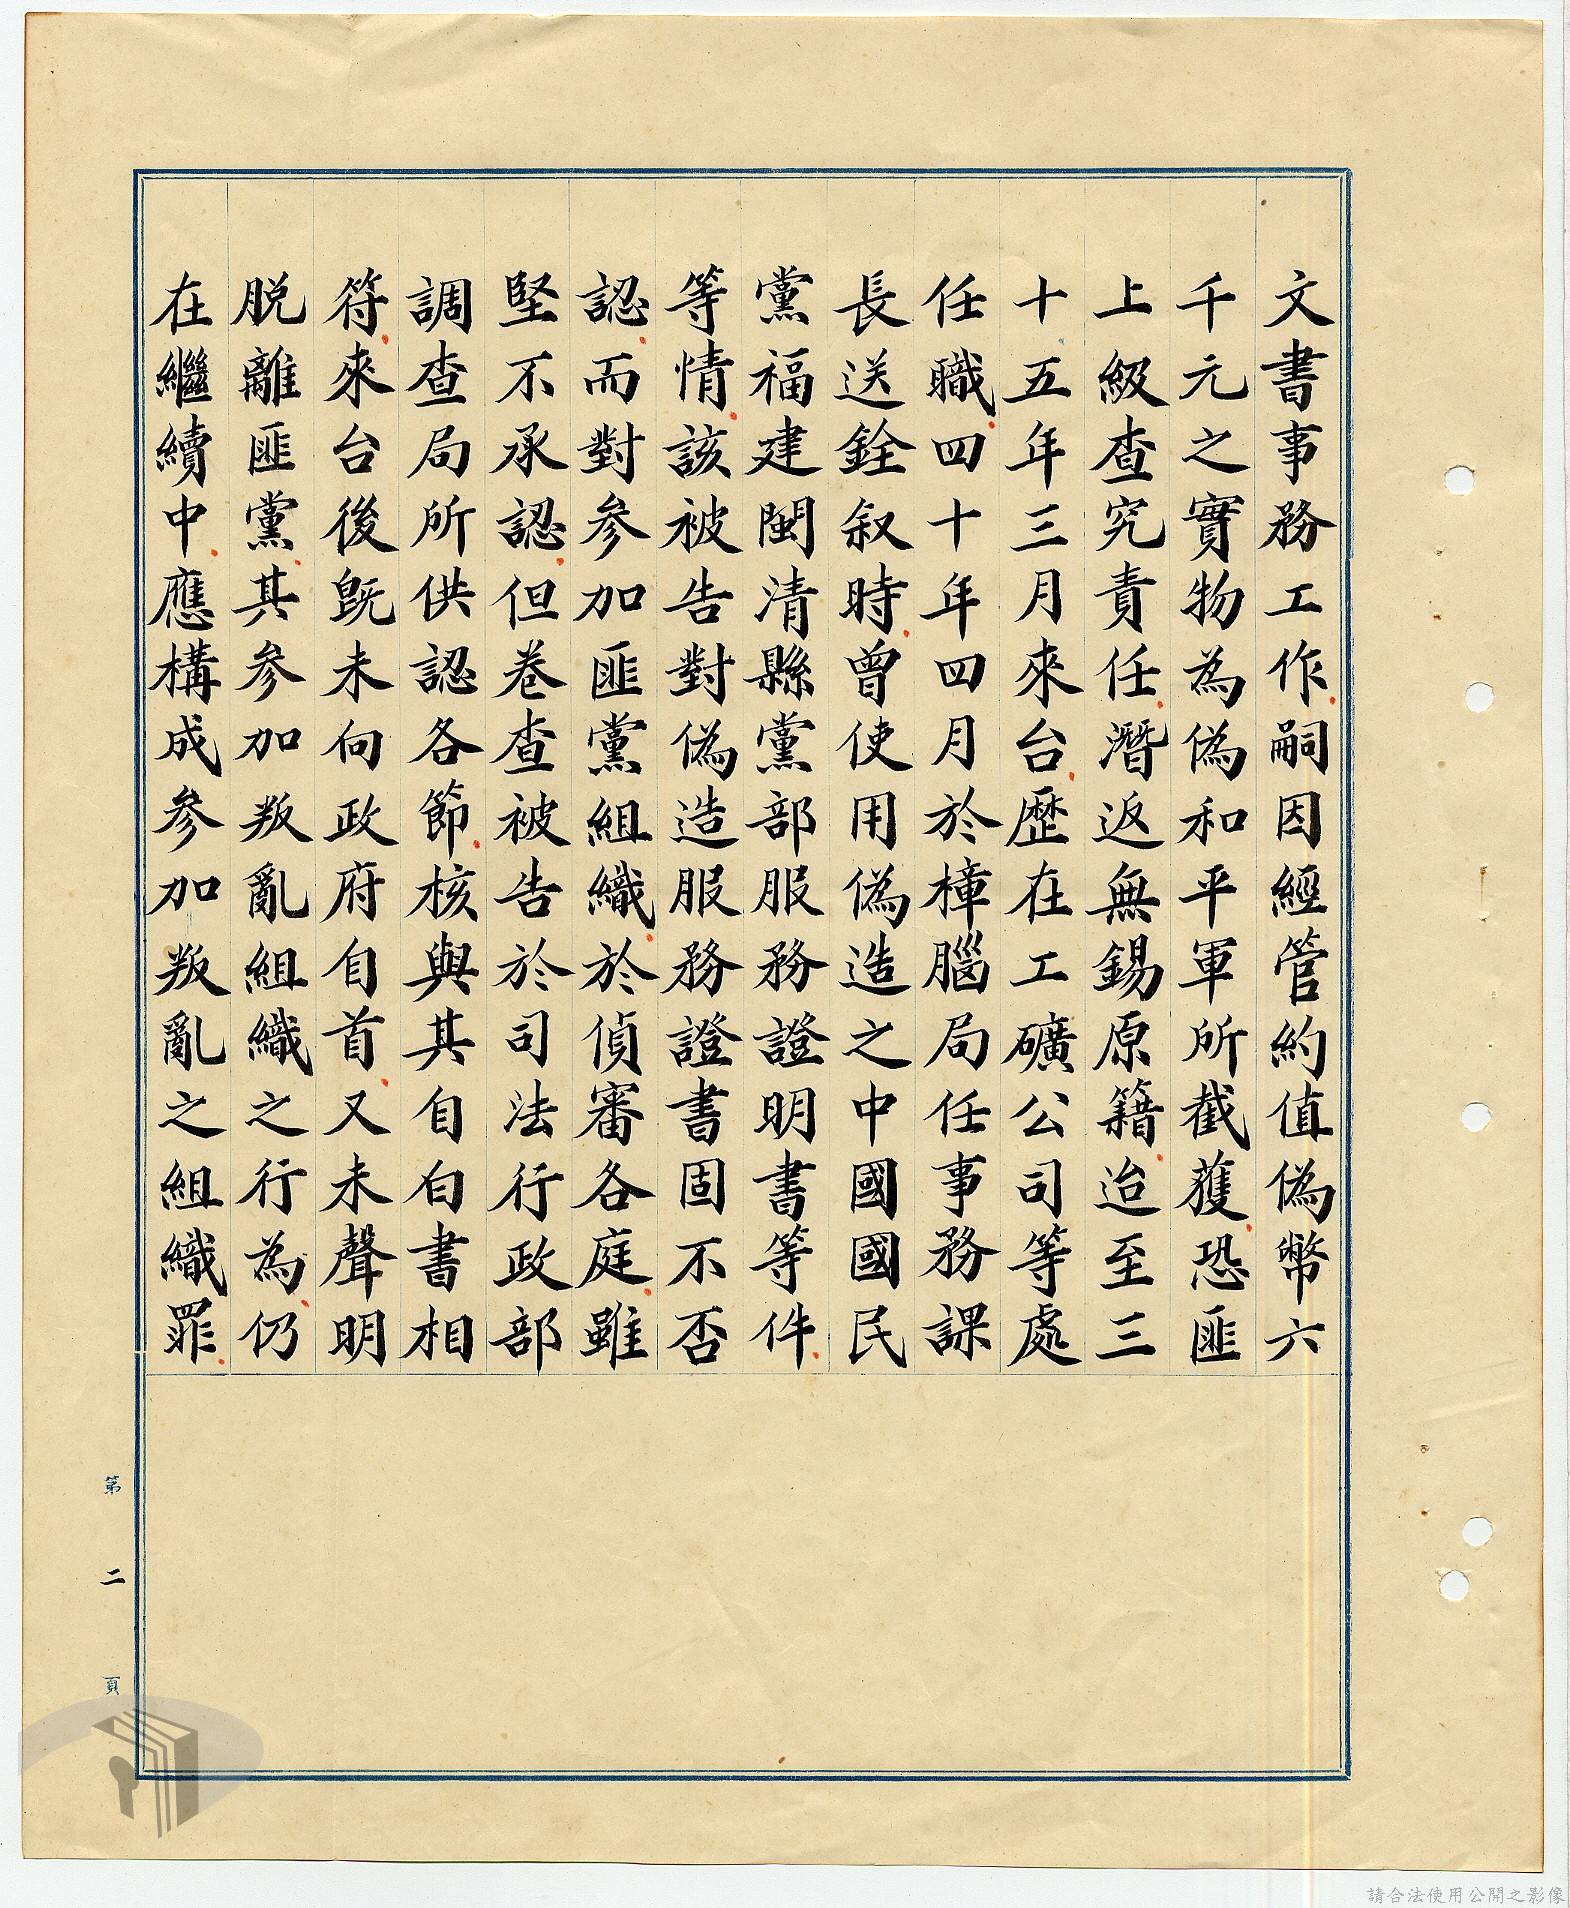 文書事務工作嗣因經管約值偽幣六
千元之實物為偽和平軍所截獲恐匪
上級查究責任潛返無錫原籍迨至三
十五年三月來台歷在工礦公司等處
任職四十年四月於樟腦局任事務課
長送銓叙時曾使用偽造之中國國民
黨福建閩清縣黨部服務證明書等件
等情該被告對偽造服務證書固不否
認而對參加匪黨組織於偵審各庭雖
堅不承認但卷查被告於司法行政部
調查局所供認各節核與其自白書相
符來台後既未向政府自首又未聲明
脫離匪黨其參加叛亂組織之行為仍
在繼續中應構成參加叛亂之組織罪
第二頁
請合法使用公開之影像